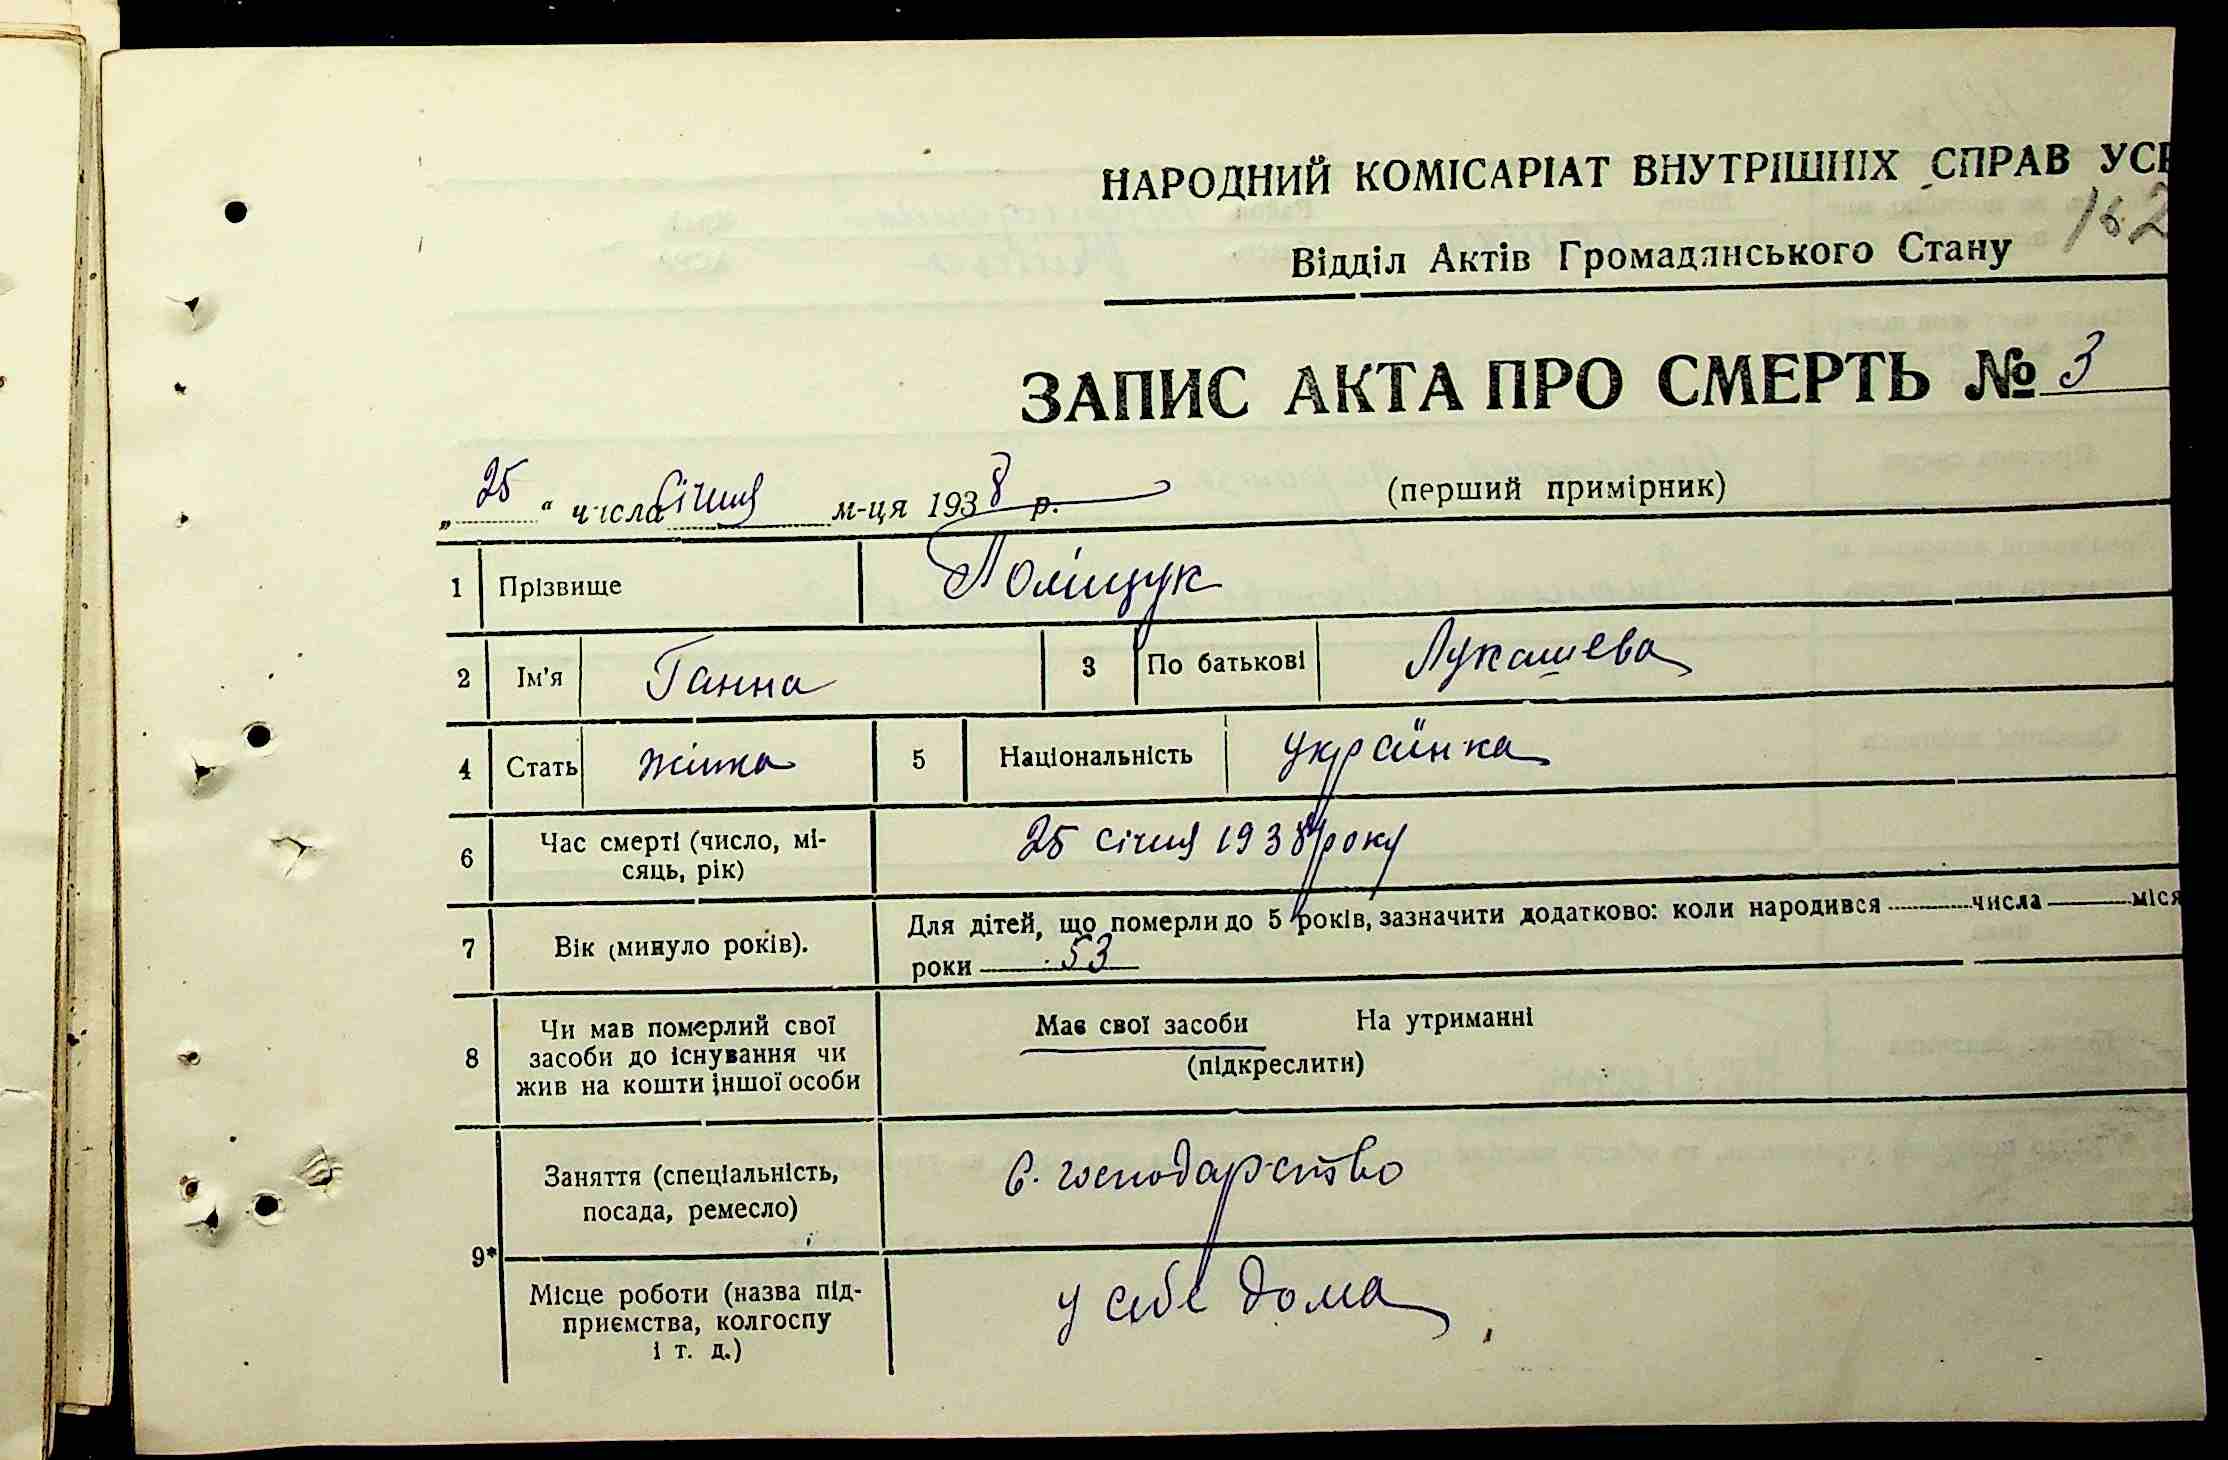 НАРОДНИЙ КОМІСАРІАТ ВНУТРІШНІХ СПРАВ УСР
162
Відділ Актів Громадянського Стану
ЗАПИС АКТА ПРО СМЕРТЬ № 3
„25“ числа січня м-ця 1938 р. (перший примірник)
1 Прізвище Поліщук
2 Ім'я Ганна 3 По батькові Лукашева
4 Стать жінка 5 Національність українка
6 Час смерті (число, мі-
сяць, рік) 25 січня 1938 року
7 Вік (минуло років). Для дітей, що померли до 5 років, зазначити додатково: коли народився числа міся
роки 53
8 Чи мав померлий свої
засоби до існування чи
жив на кошти іншої особи
Має свої засоби На утриманні
(підкреслити)
9* Заняття (спеціальність,
посада, ремесло) с. господарство
Місце роботи (назва під-
приємства, колгоспу
і т. д.) у себе дома